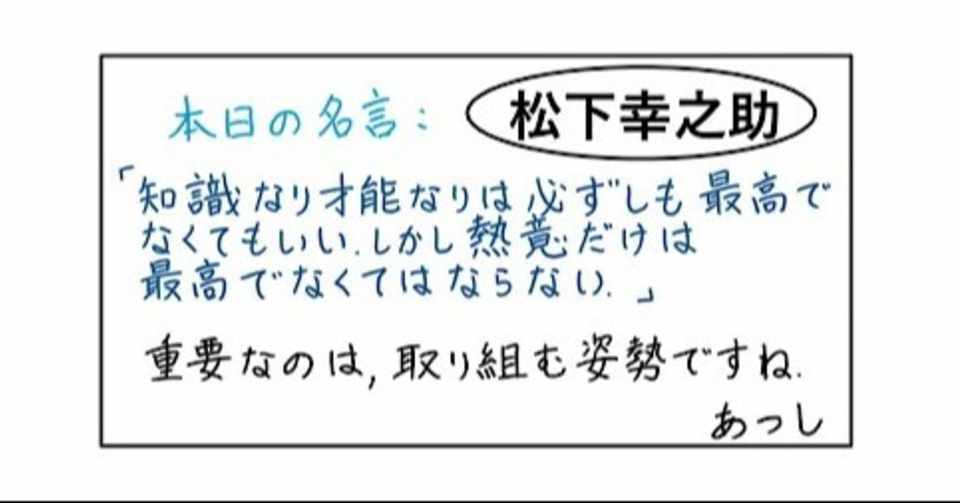 本日の名言: 松下幸之助
「知識なり才能なりは必ずしも最高で
なくてもいい.しかし熱意だけは
最高でなくてはならない.」
重要なのは,取り組む姿勢ですね.
あっし